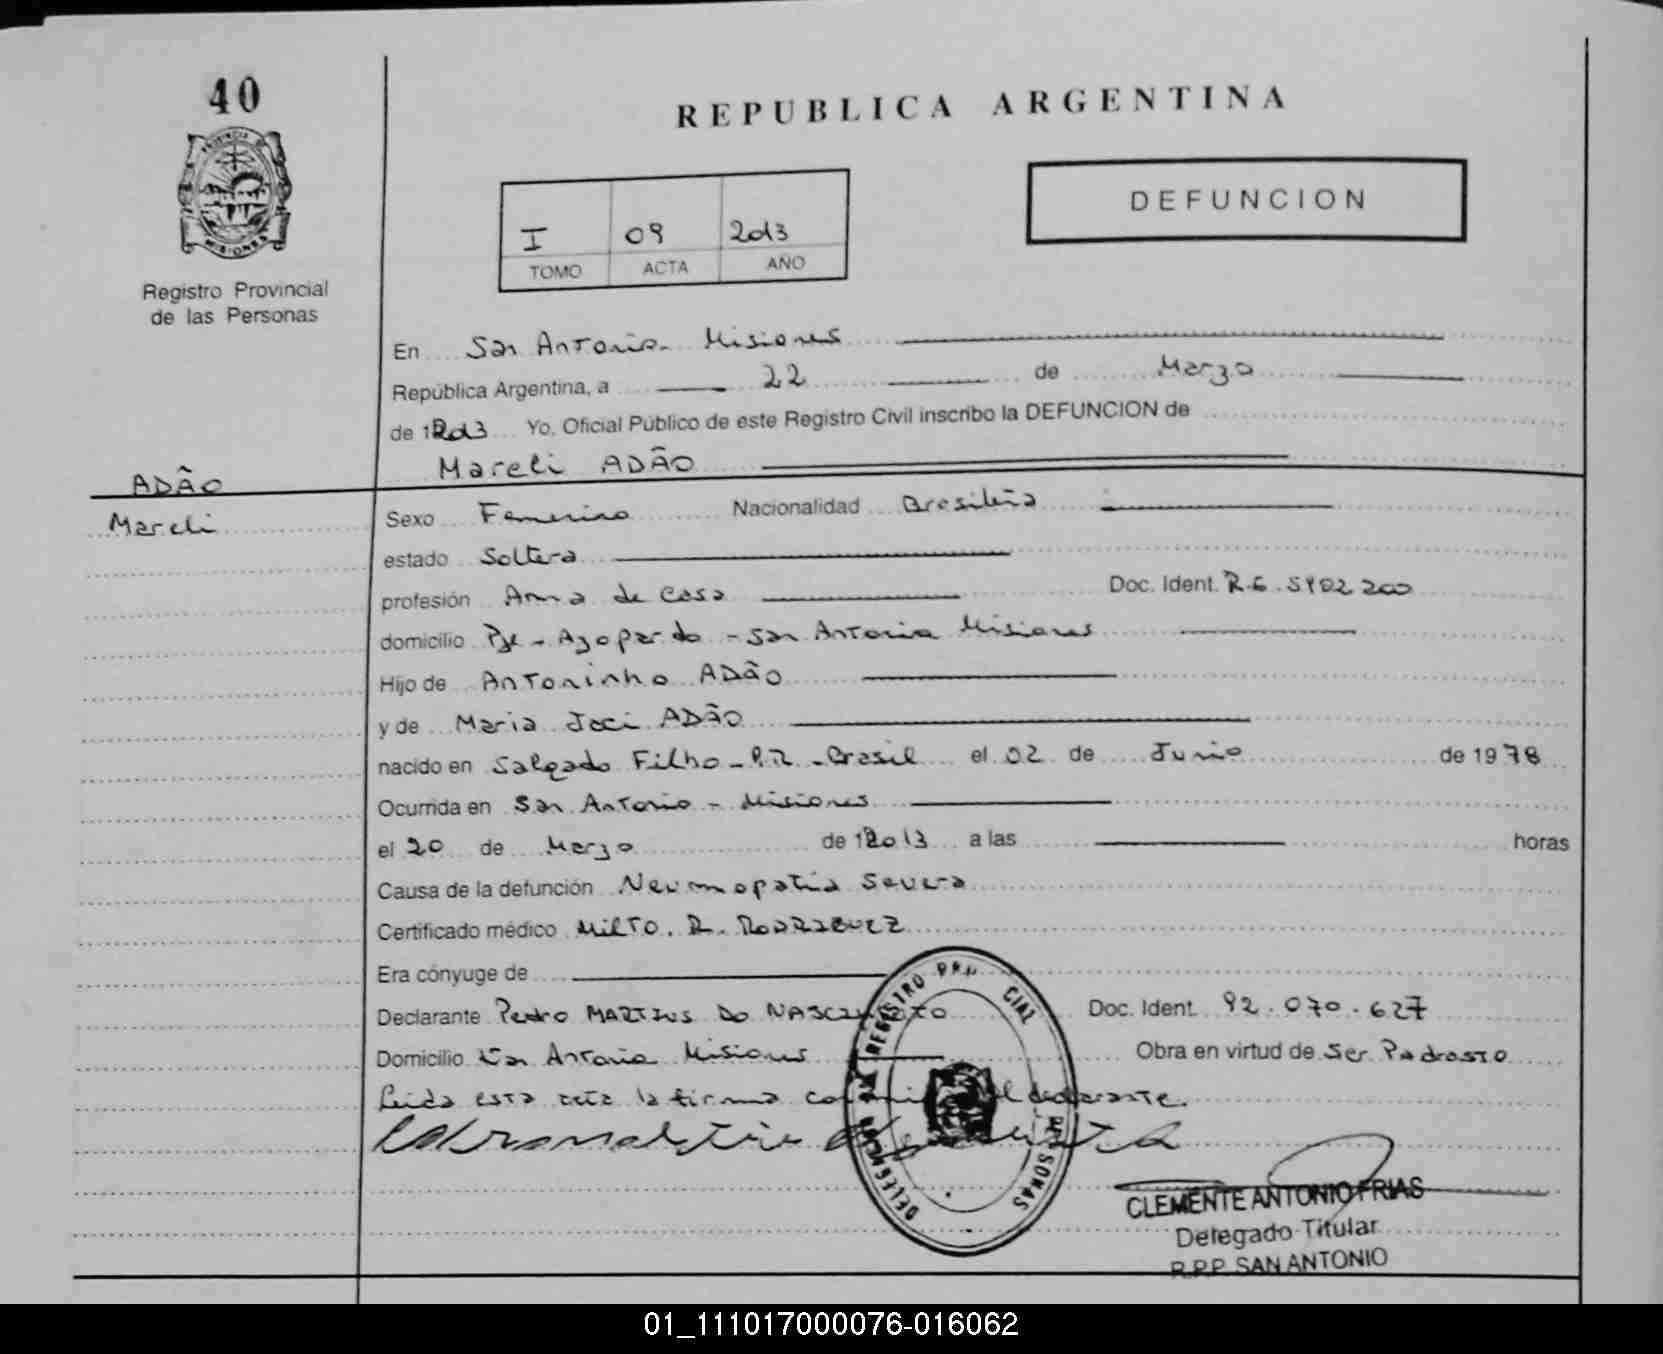 40
REPUBLICA ARGENTINA
PROVINCIA DE
MISIONES
Registro Provincial
de las Personas
DEFUNCION
I 09 2013
TOMO ACTA AÑO
En San Antonio Misiones
República Argentina, a 22 de Marzo
de 12013 Yo, Oficial Público de este Registro Civil inscribo la DEFUNCION de
Mareli ADÃO
ADÃO
Mareli
Sexo Femenino Nacionalidad Brasileña
estado Soltera
profesión Ama de Casa Doc. Ident. R.G. 5902200
domicilio Pje - Azopardo - San Antonio Misiones
Hijo de Antoninho ADÃO
y de Maria Joci ADÃO
nacido en Salgado Filho - P.R. - Brasil el 02 de Junio de 1978
Ocurrida en San Antonio - Misiones
el 20 de Marzo de 12013 a las horas
Causa de la defunción Neumopatia Severa
Certificado médico Milto. R. RODRIGUEZ
Era cónyuge de
Declarante Pedro MARTINS DO NASCIMENTO Doc. Ident. 92.070.627
Domicilio San Antonio Misiones Obra en virtud de Ser Padrasto
Leida esta acta la firma conmigo el declarante.
DELEGACION REGISTRO PROVINCIAL PERSONAS
CLEMENTE ANTONIO FRIAS
Delegado Titular
R.P.P. SAN ANTONIO
01_111017000076-016062